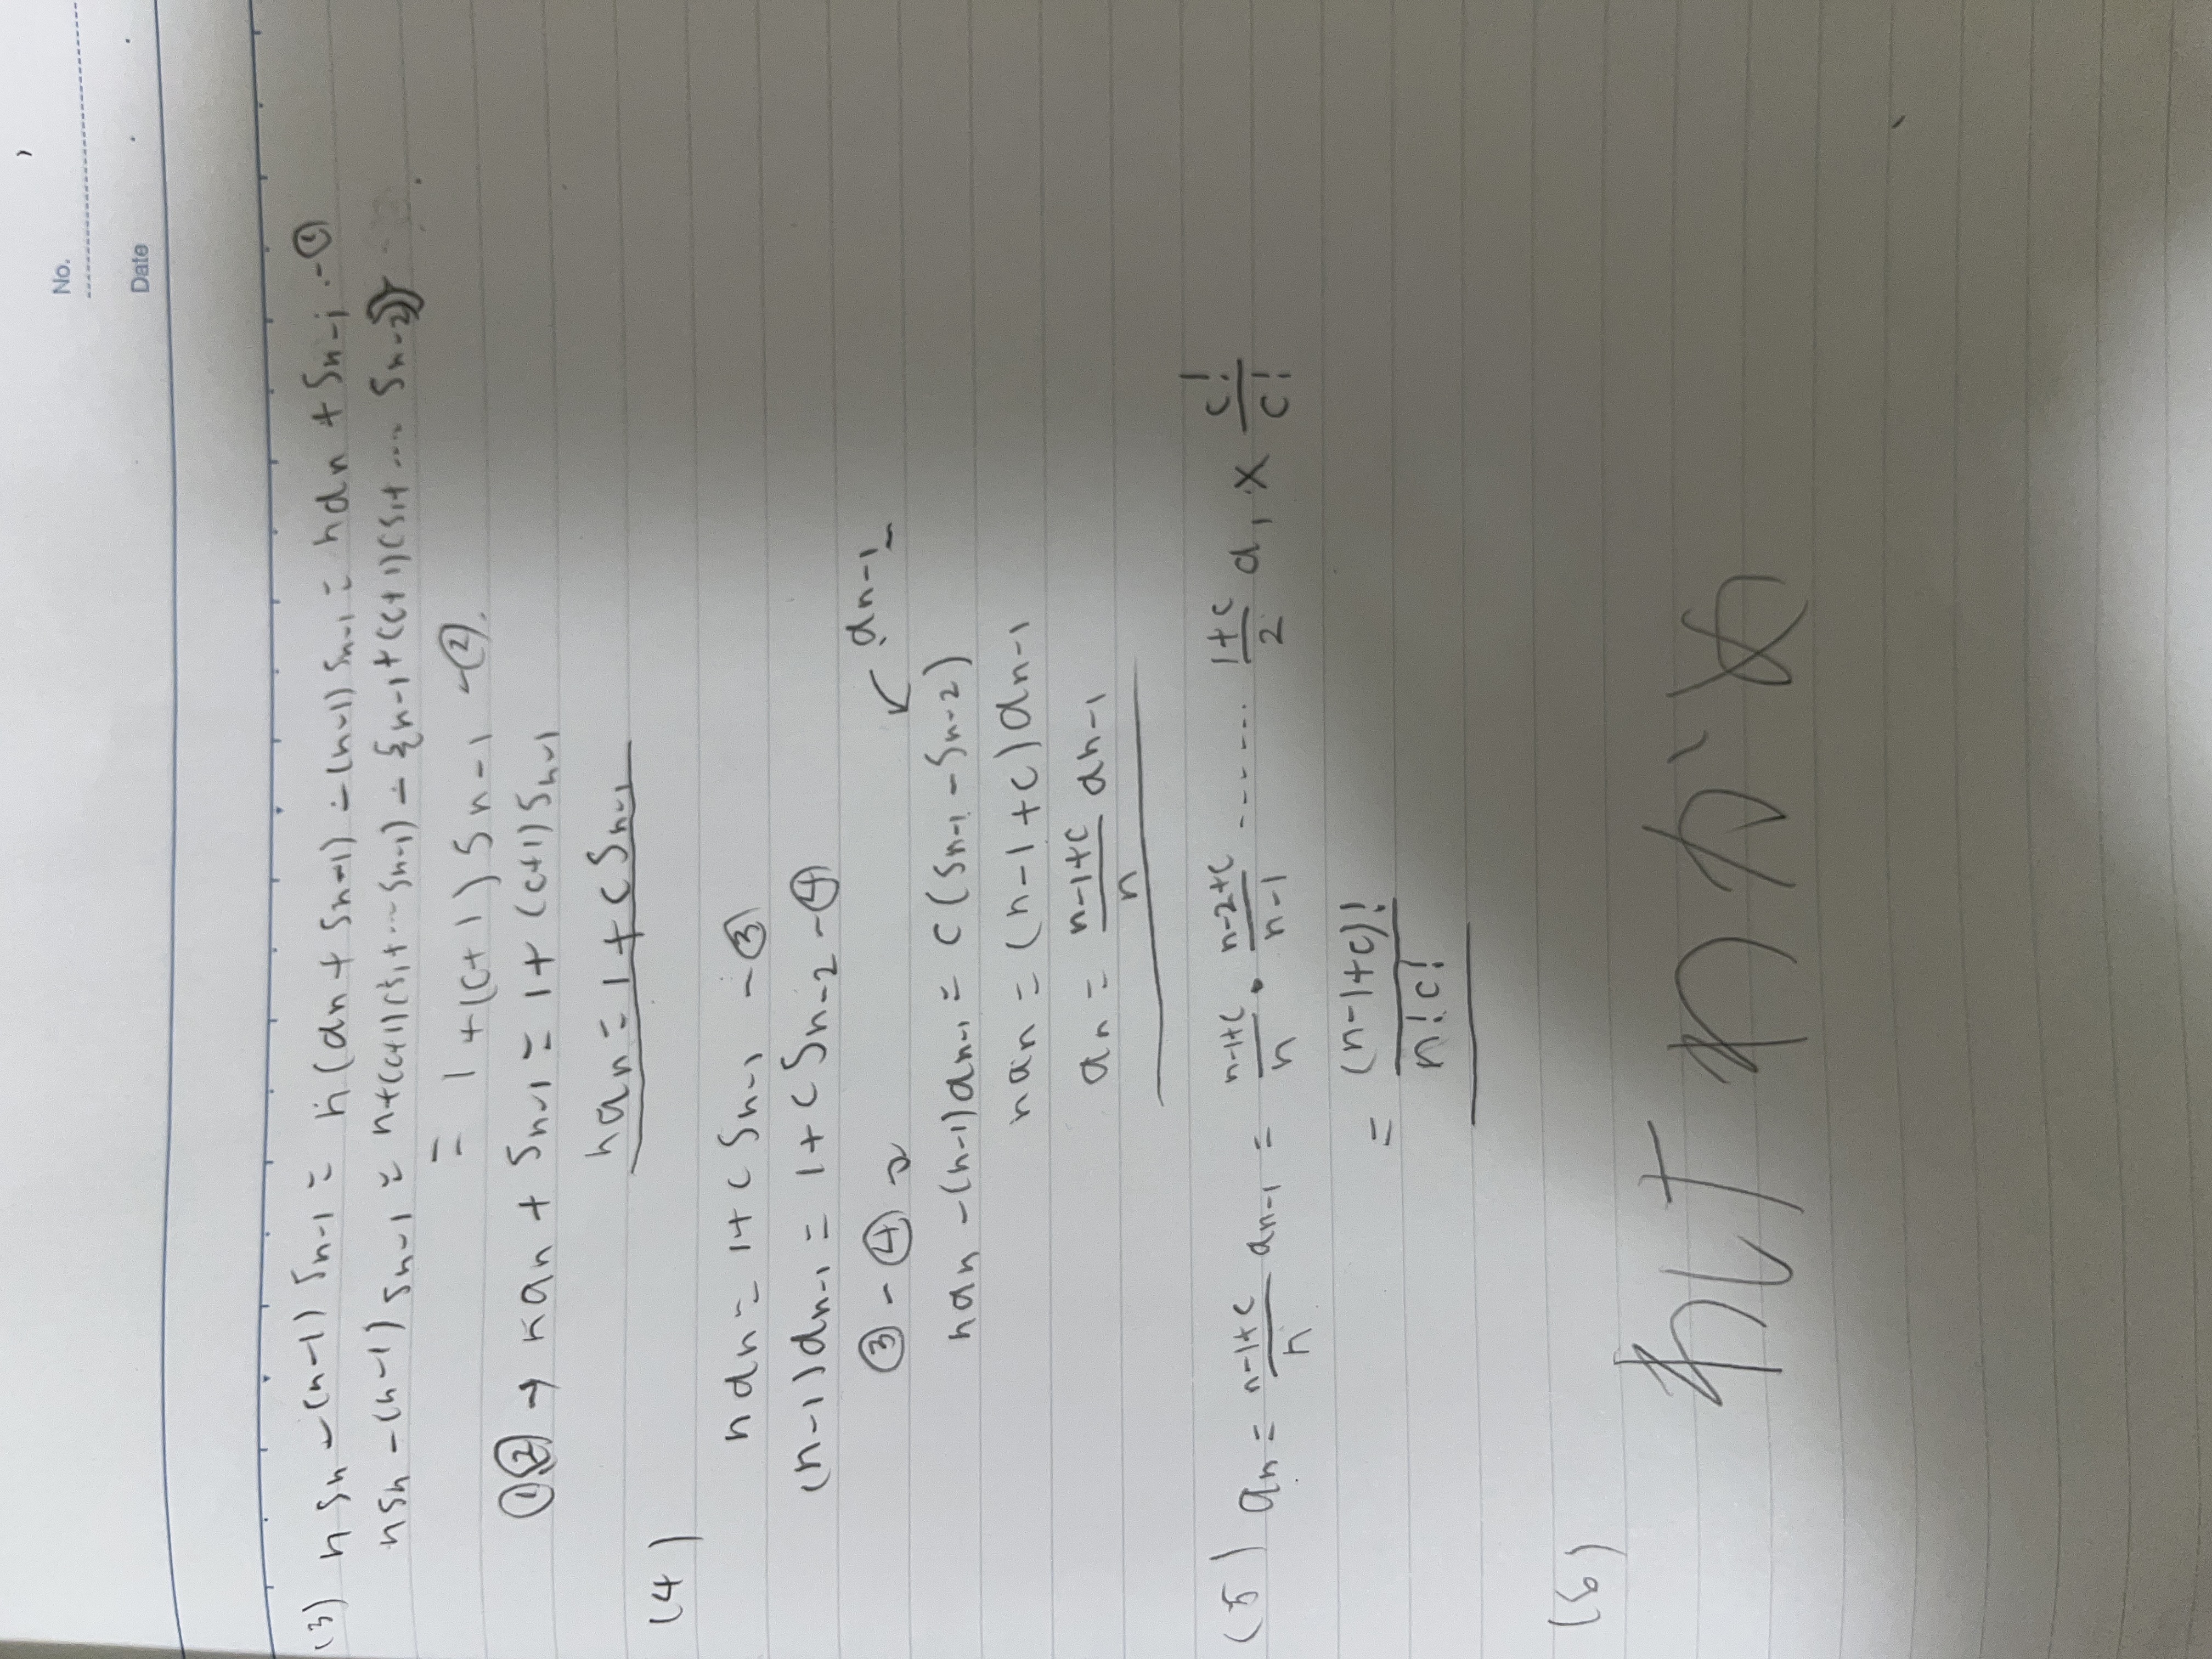 No.
Date
(3) nSn-(n-1)Sn-1 = n(an+Sn-1)-(n-1)Sn-1 = nan+Sn-1 -①
nSn-(n-1)Sn-1 = n+(c+1)(S1+...Sn-1)-{n-1+(c+1)(S1+...Sn-2)}
= 1+(c+1)Sn-1 -②.
①② → nan+Sn-1 = 1+(c+1)Sn-1
nan = 1+cSn-1
(4)
nan = 1+cSn-1 -③
(n-1)an-1 = 1+cSn-2 -④
③-④→ ↙an-1
nan-(n-1)an-1 = c(Sn-1-Sn-2)
nan = (n-1+c)an-1
an = (n-1+c)/n an-1
(5) an = (n-1+c)/n an-1 = (n-1+c)/n・(n-2+c)/(n-1) ...... (1+c)/2 a1 × c!/c!
= (n-1+c)!/n!c!
(6)
わけわかめ